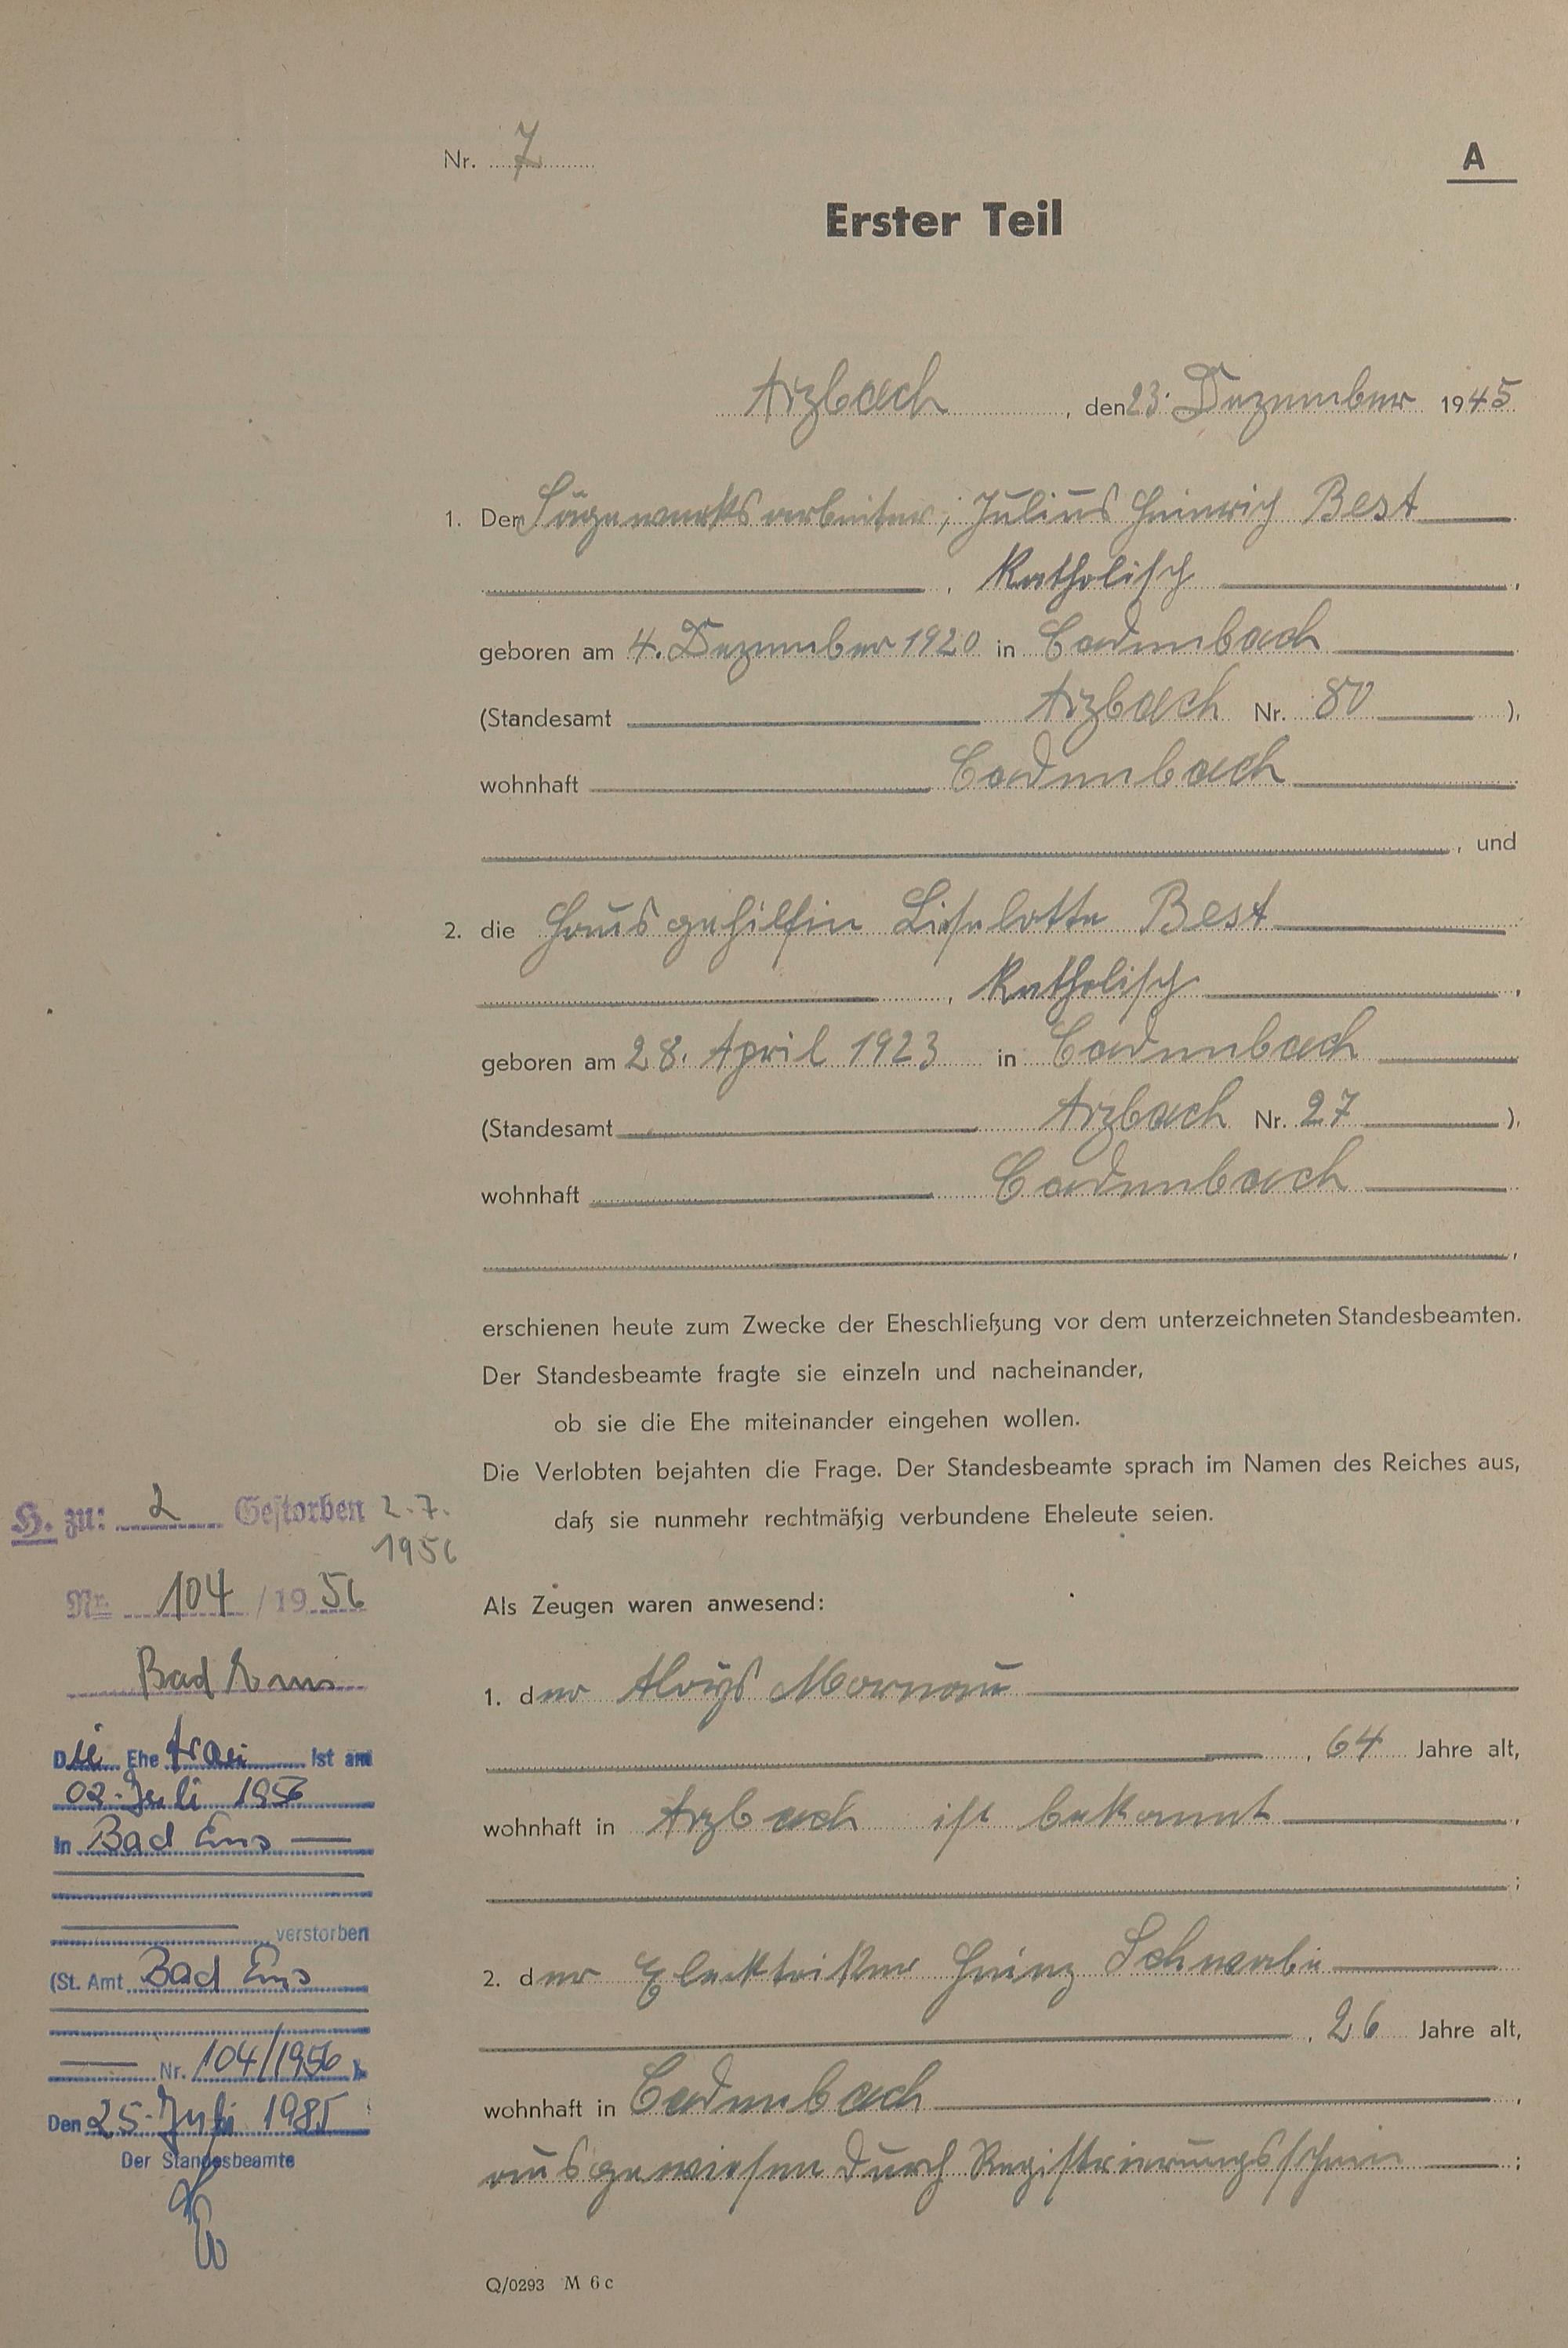 Nr. 7
A
Erster Teil
Arzbach, den 23. Dezember 1945
1. Der Sägewerksarbeiter, Julius Heinrich Best
, Katholisch,
geboren am 4. Dezember 1920 in Cadenbach
(Standesamt Arzbach Nr. 80),
wohnhaft Cadenbach
, und
2. die Hausgehilfin Liselotte Best
, Katholisch,
geboren am 28. April 1923 in Cadenbach
(Standesamt Arzbach Nr. 27),
wohnhaft Cadenbach
,
erschienen heute zum Zwecke der Eheschließung vor dem unterzeichneten Standesbeamten.
Der Standesbeamte fragte sie einzeln und nacheinander,
ob sie die Ehe miteinander eingehen wollen.
Die Verlobten bejahten die Frage. Der Standesbeamte sprach im Namen des Reiches aus,
daß sie nunmehr rechtmäßig verbundene Eheleute seien.
Als Zeugen waren anwesend:
1. der Aloys Mornau
, 64 Jahre alt,
wohnhaft in Arzbach ist bekannt,
;
2. der Elecktriker Heinz Schwabe
, 26 Jahre alt,
wohnhaft in Cadenbach,
ausgewiesen durch Registrierungsschein;
Q/0293 M 6 c
H. zu: 2 Gestorben 2.7.
1956
Nr. 104/1956
Bad Ems
Die Ehefrau ist am
02. Juli 1956
in Bad Ems
verstorben
(St. Amt Bad Ems
Nr. 104/1956).
Den 25. Juli 1985
Der Standesbeamte